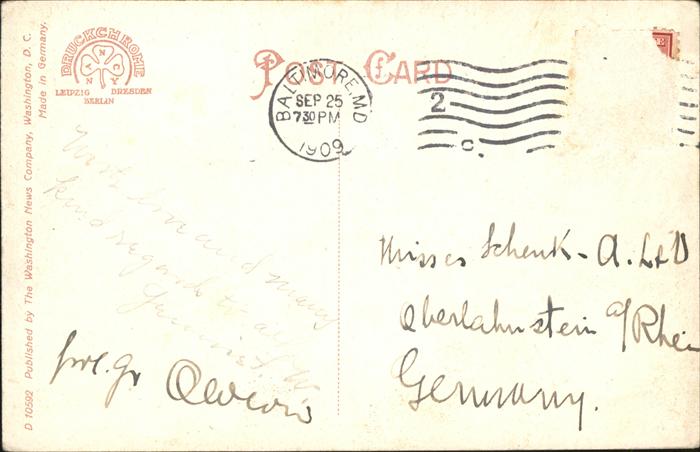 D 10592 Published by The Washington News Company, Washington, D. C.
Made in Germany.
DRUCKCHROME
NANCY
LEIPZIG DRESDEN
BERLIN
POST CARD
BALTIMORE, MD
SEP 25
730 PM
1909
2
C.
With love and many
kind regards to all
Misses Schenk - A.
Oberlahnstein a/Rhein
Germany.